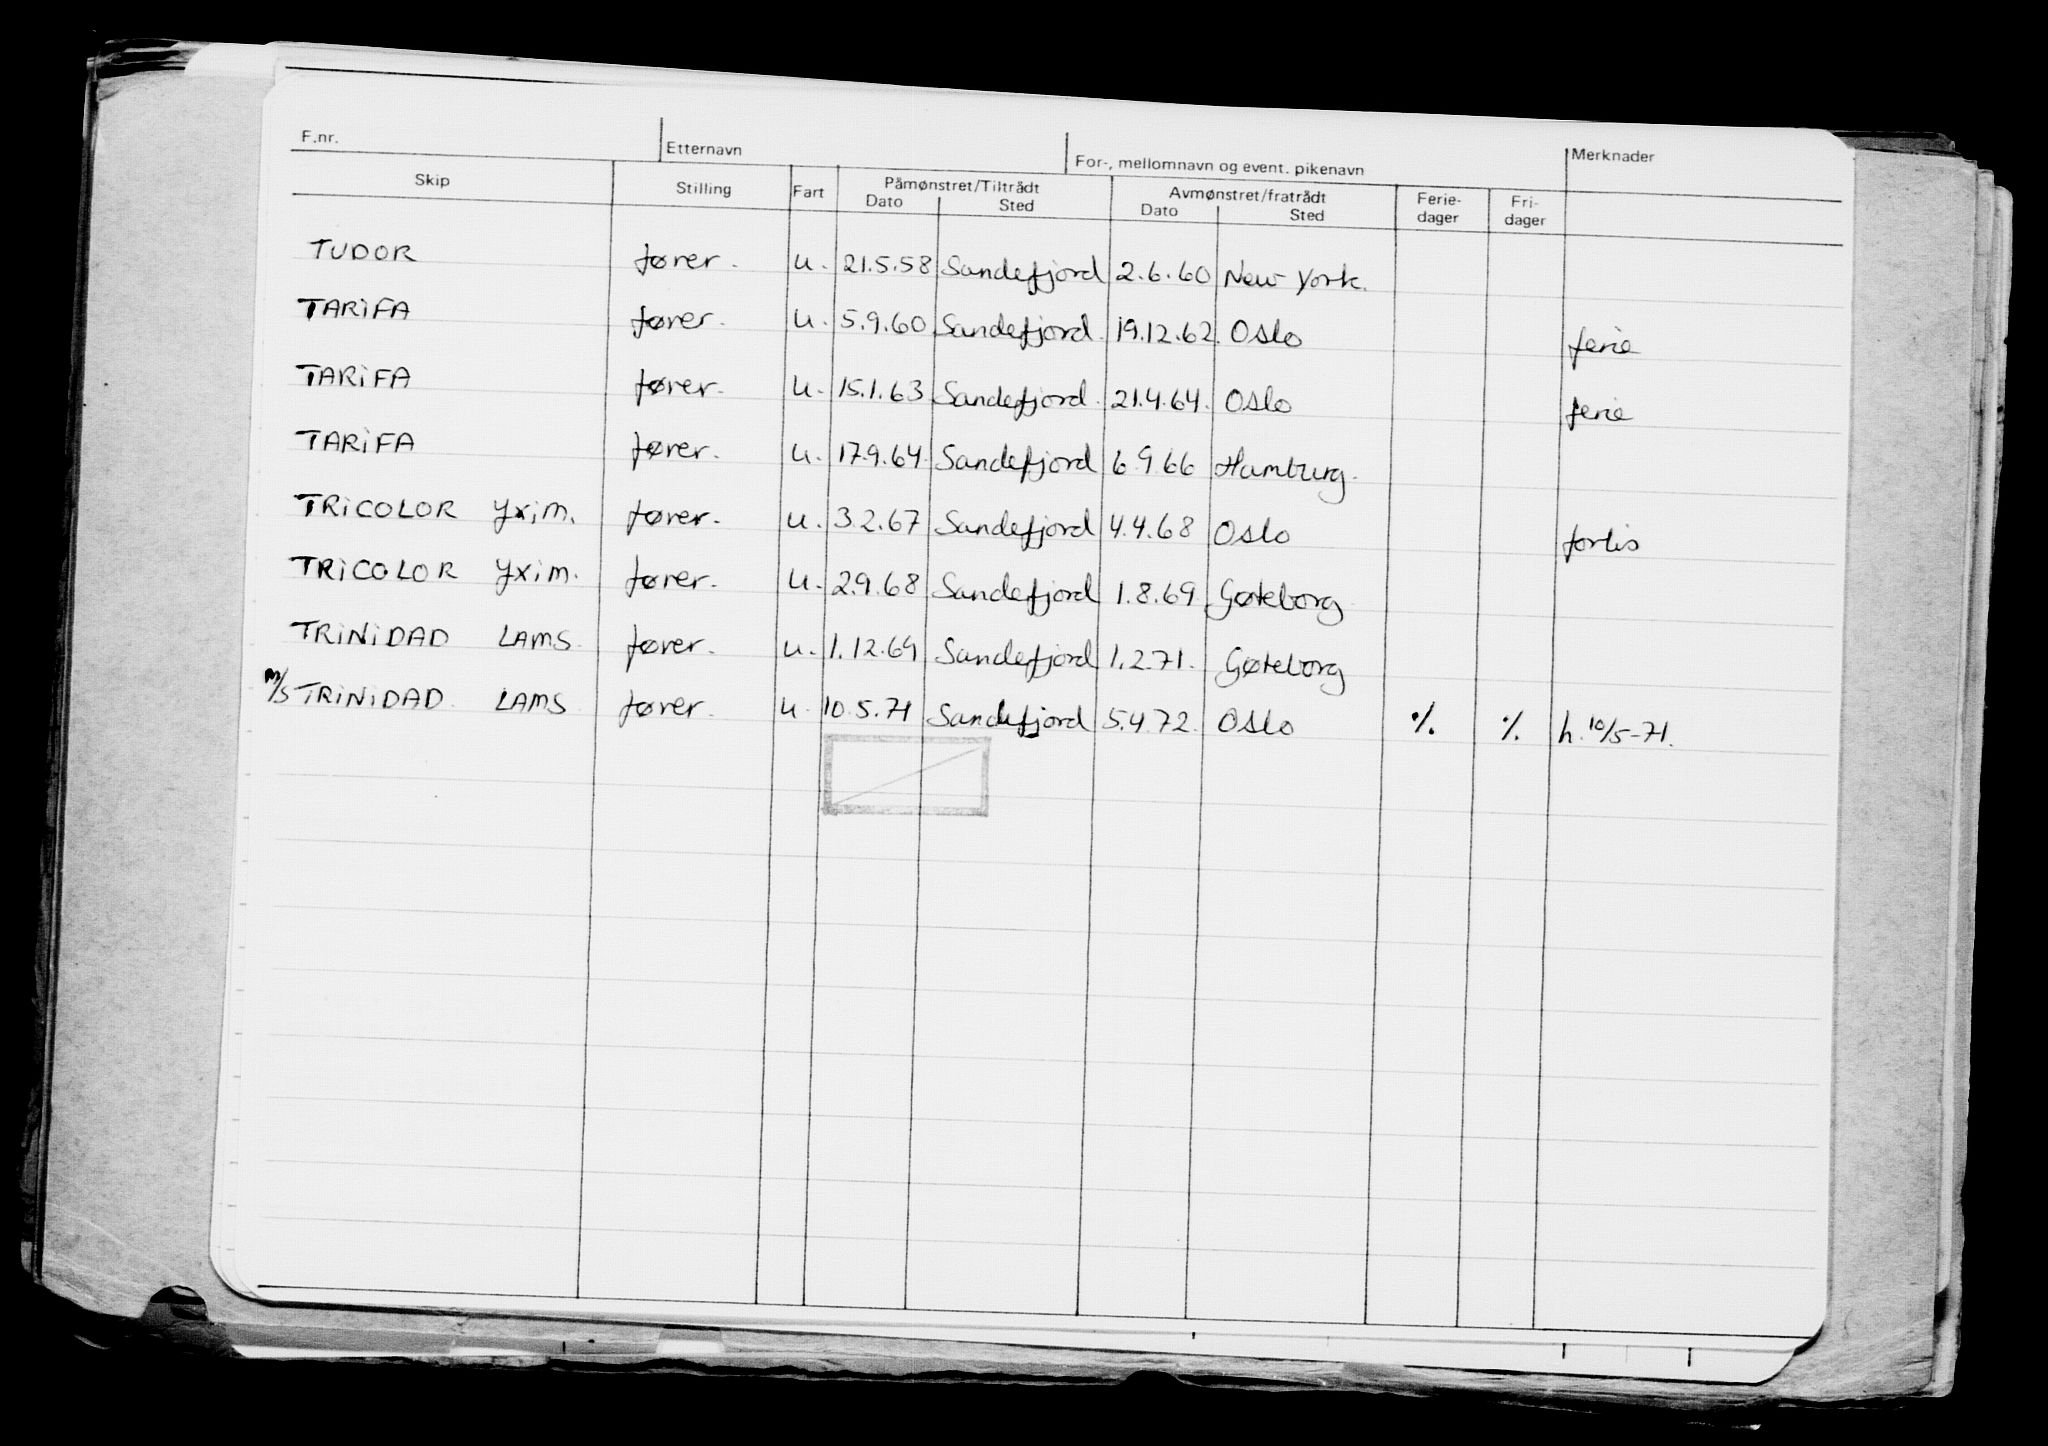 F.nr. Etternavn For-, mellomnavn og event. pikenavn Merknader
Skip Stilling Fart Påmønstret/Tiltrådt Avmønstret/fratrådt Ferie- Fri-
Dato Sted Dato Sted dager dager
TUDOR fører. u. 21.5.58 Sandefjord 2.6.60 New York.
TARIFA fører. u. 5.9.60 Sandefjord. 19.12.62. Oslo ferie
TARIFA fører. u. 15.1.63 Sandefjord. 21.4.64. Oslo ferie
TARIFA fører. u. 17.9.64. Sandefjord 6.9.66 Hamburg.
TRICOLOR fører. u. 3.2.67 Sandefjord 4.4.68 Oslo
TRICOLOR fører. u. 2.9.68 Sandefjord 1.8.69 Gøteborg
TRINIDAD LAMS. fører. u. 1.12.69 Sandefjord 1.2.71. Gøteborg
m/s TRINIDAD. LAMS fører. u. 10.5.71 Sandefjord 5.4.72. Oslo ./. ./. h. 10/5-71.